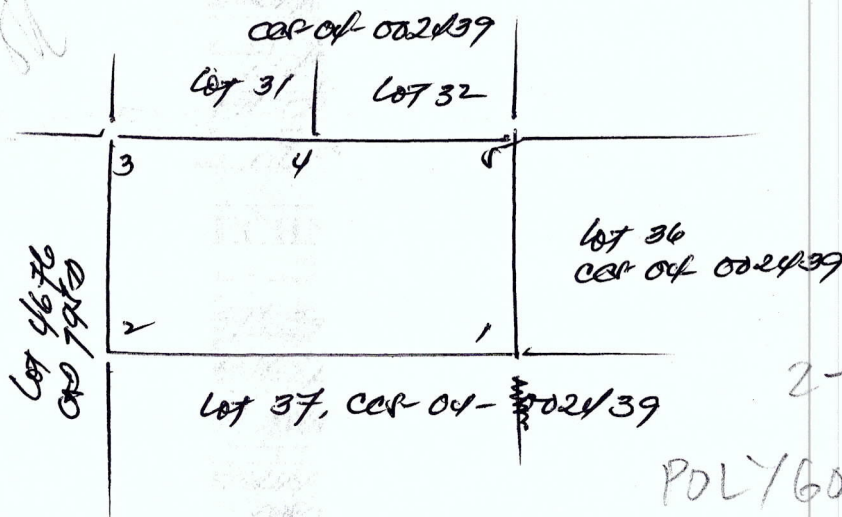 ccs-04-002439
Lot 31
Lot 32
3
4
5
Lot 36
ccs-04-002439
Lot 4676
CAD 795-D
2
1
Lot 37, ccs-04-002439
2-
POLYGO